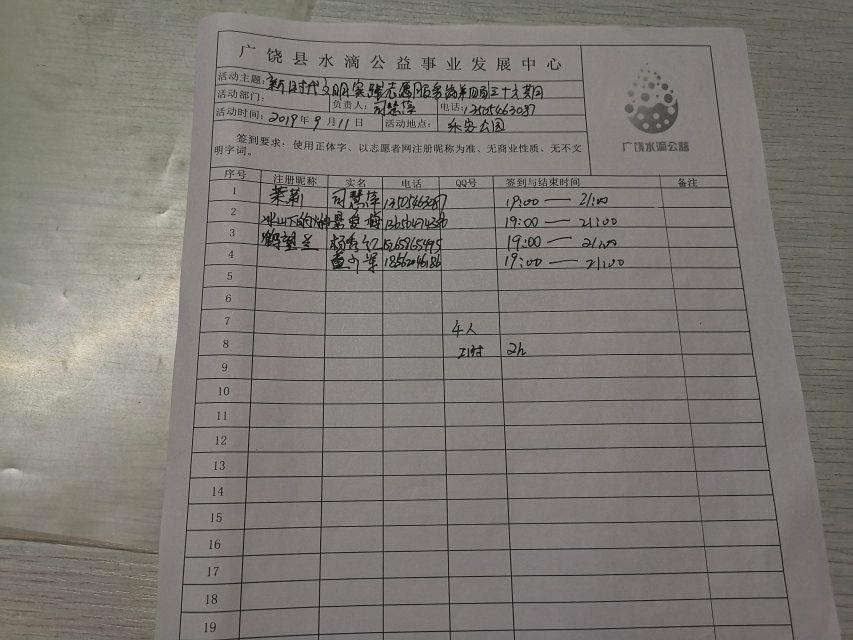 广饶县水滴公益事业发展中心
活动主题: 新时代文明实践志愿服务 第四局三十九期
活动部门: 负责人: 司慧萍 电话: 13505463087
活动时间: 2019年9月11日 活动地点: 乐安公园
签到要求：使用正体字、以志愿者网注册昵称为准、无商业性质、无不文
明字词。
广饶水滴公益
序号 注册昵称 实名 电话 QQ号 签到与结束时间 备注
1 茉莉 司慧萍 13505463087 19:00 — 21:00
2 冰山下的 19:00 — 21:00
3 鹤望兰 19:00 — 21:00
4 18562046186 19:00 — 21:00
5
6
7 4人
8 工时 2h
9
10
11
12
13
14
15
16
17
18
19